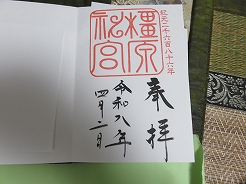 紀元二千六百八十六年
橿原神宮
奉拝
令和八年
四月二日